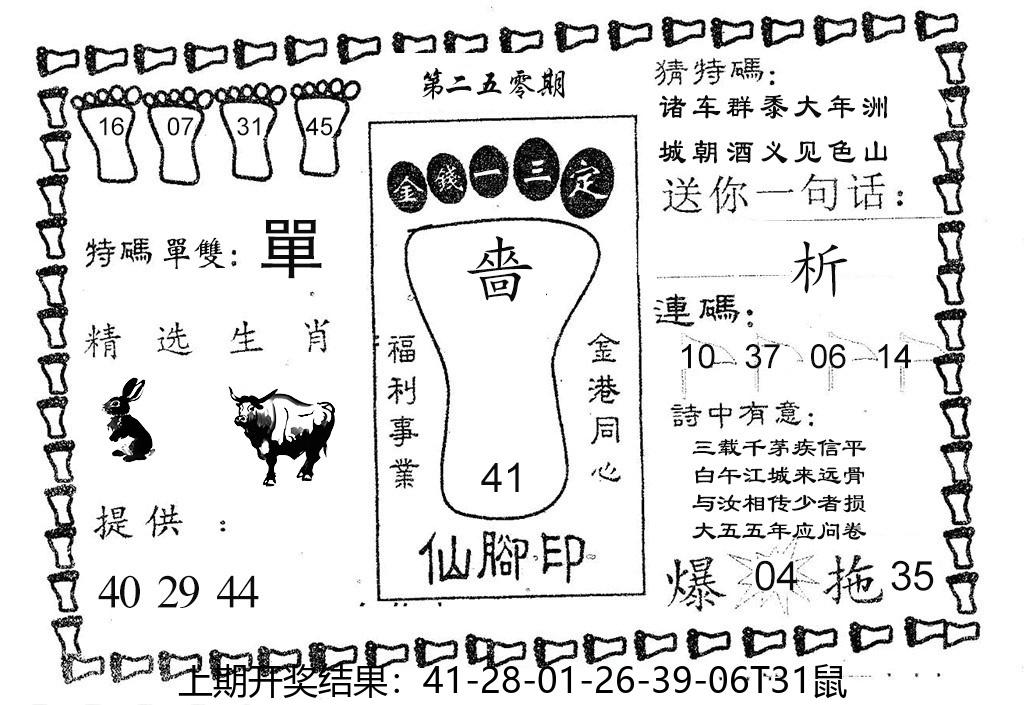 第二五零期
16 07 31 45
特碼單雙：單
精选生肖
提供：
40 29 44
金錢一三定
啬
福利事業
金港同心
41
仙腳印
猜特碼：
诸车群黍大年洲
城朝酒义见色山
送你一句话：
析
連碼：
10 37 06 14
詩中有意：
三载千茅疾信平
白午江城来远骨
与汝相传少者损
大五五年应问卷
爆 04 拖 35
上期开奖结果：41-28-01-26-39-06T31鼠